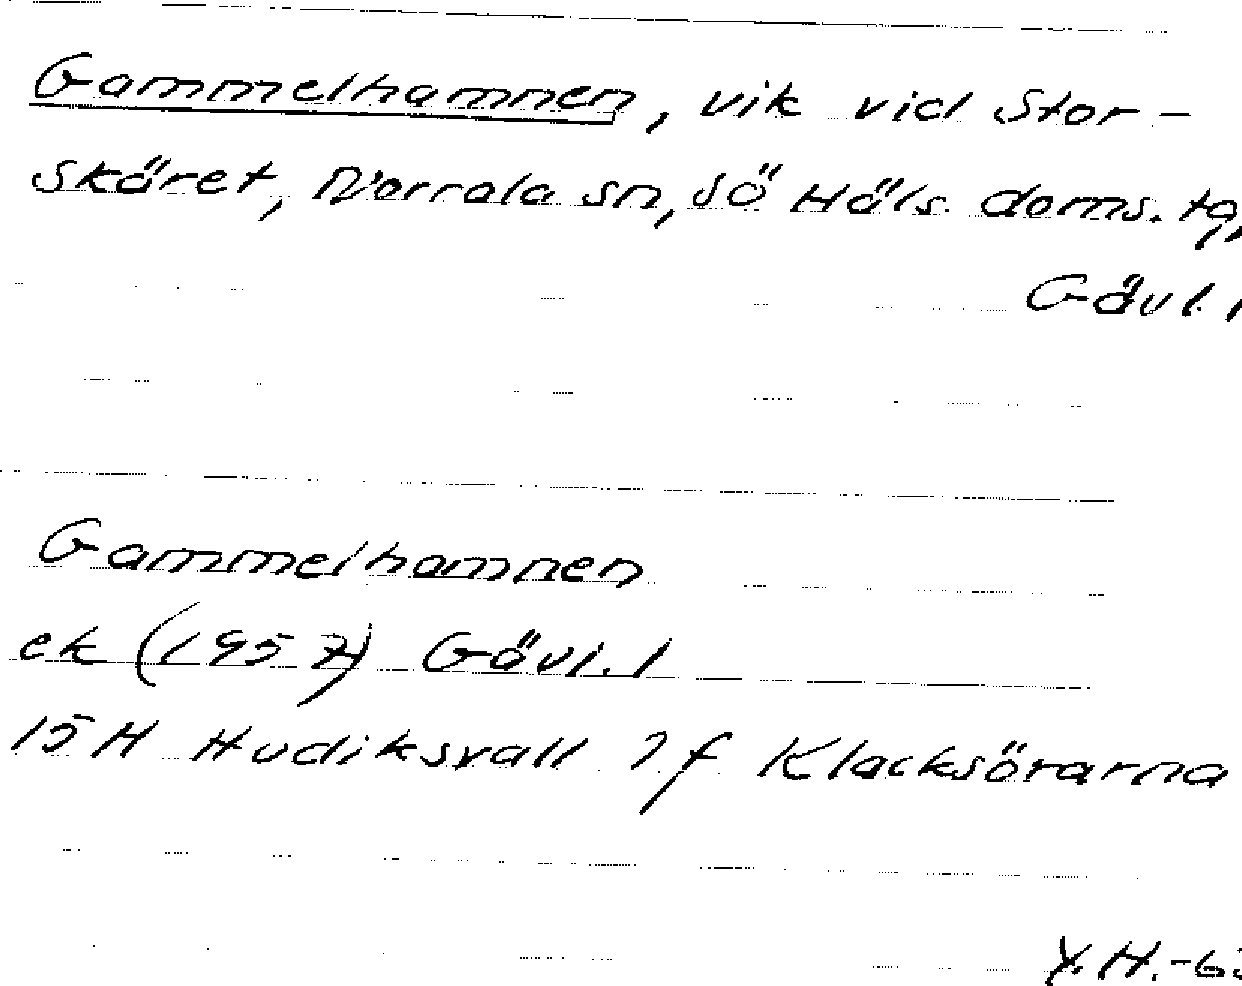 Gammelhamnen, vik vid Stor-
skäret, Norrala sn, SÖ Häls. doms. tg,
Gävl. l
Gammelhamnen
ek (1957) Gävl. l
15H Hudiksvall 7f Klacksörarna
Y.H.-6